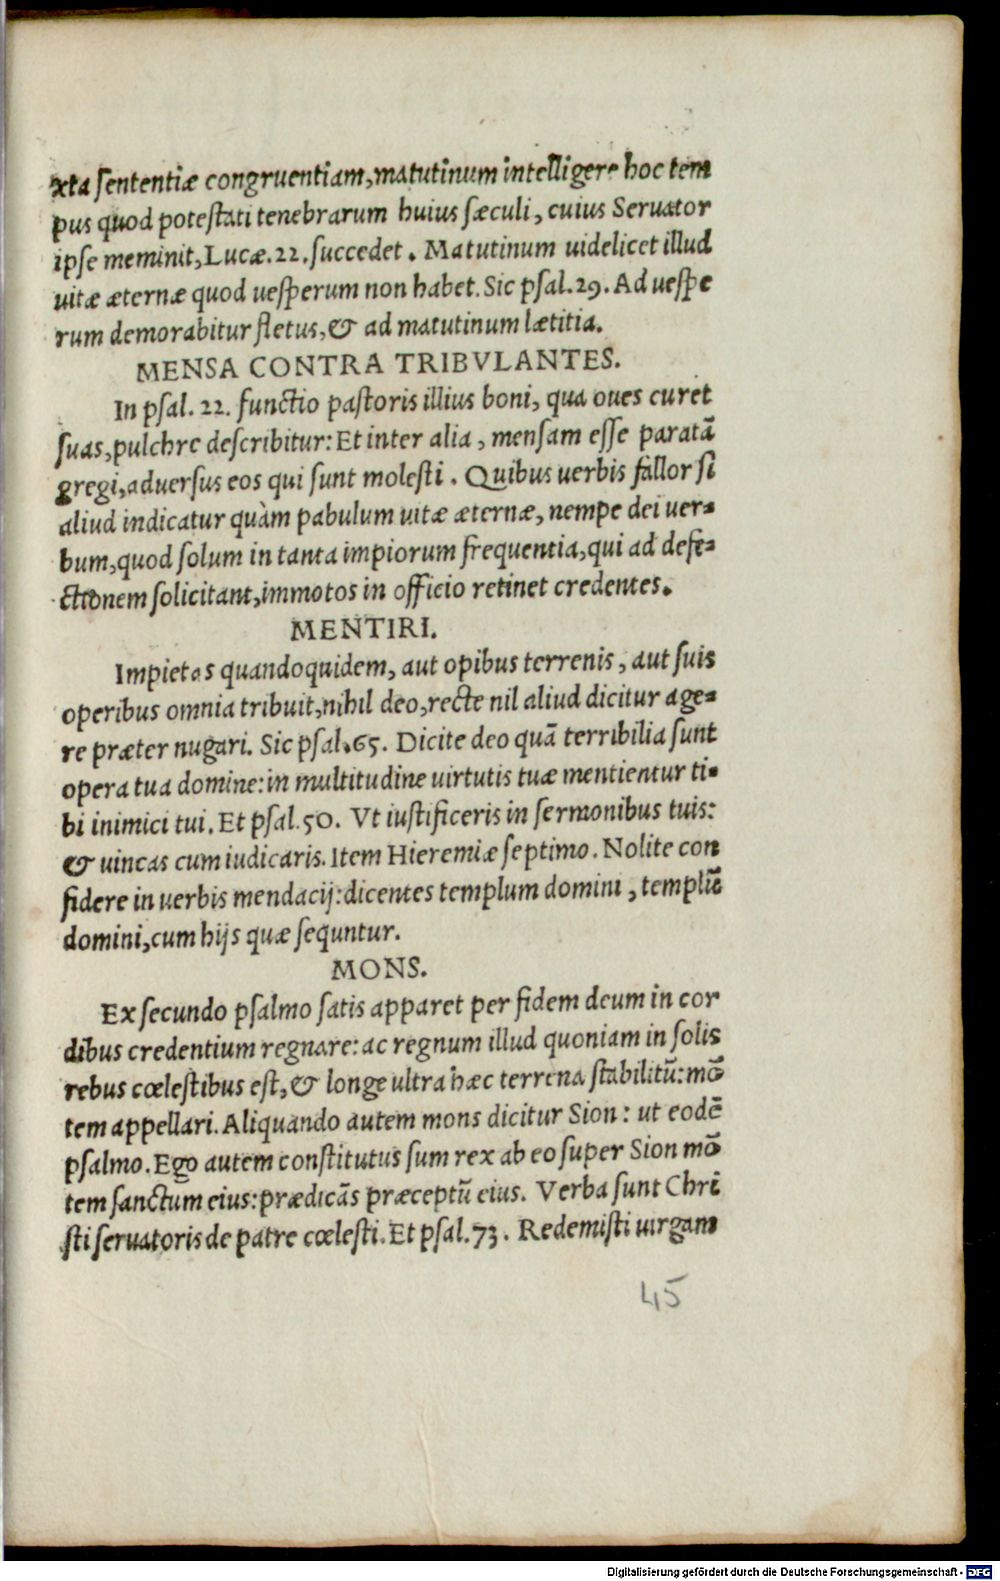 xta sententiæ congruentiam,matutinum intelligere hoc tem
pus quod potestati tenebrarum huius sæculi, cuius Seruator
ipse meminit,Lucæ.22.succedet. Matutinum uidelicet illud
uitæ æternæ quod uesperum non habet. Sic psal.29. Ad uespe
rum demorabitur fletus,& ad matutinum lætitia.
MENSA CONTRA TRIBVLANTES.
In psal. 22. functio pastoris illius boni, qua oues curet
suas,pulchre describitur: Et inter alia, mensam esse paratã
gregi,aduersus eos qui sunt molesti. Quibus uerbis fallor si
aliud indicatur quàm pabulum uitæ æternæ, nempe dei uer-
bum,quod solum in tanta impiorum frequentia,qui ad defe-
ctionem solicitant,immotos in officio retinet credentes.
MENTIRI.
Impietas quandoquidem, aut opibus terrenis, aut suis
operibus omnia tribuit,nihil deo,recte nil aliud dicitur age-
re præter nugari. Sic psal.65. Dicite deo quã terribilia sunt
opera tua domine:in multitudine uirtutis tuæ mentientur ti-
bi inimici tui. Et psal.50. Vt iustificeris in sermonibus tuis:
& uincas cum iudicaris. Item Hieremiæ septimo. Nolite con
fidere in uerbis mendacij:dicentes templum domini, templũ
domini,cum hijs quæ sequntur.
MONS.
Ex secundo psalmo satis apparet per fidem deum in cor
dibus credentium regnare: ac regnum illud quoniam in solis
rebus cœlestibus est,& longe ultra hæc terrena stabilitũ:mõ
tem appellari. Aliquando autem mons dicitur Sion: ut eodẽ
psalmo. Ego autem constitutus sum rex ab eo super Sion mõ
tem sanctum eius:prædicãs præceptũ eius. Verba sunt Chri
sti seruatoris de patre cœlesti. Et psal.73. Redemisti uirgam
45
Digitalisierung gefördert durch die Deutsche Forschungsgemeinschaft - DFG